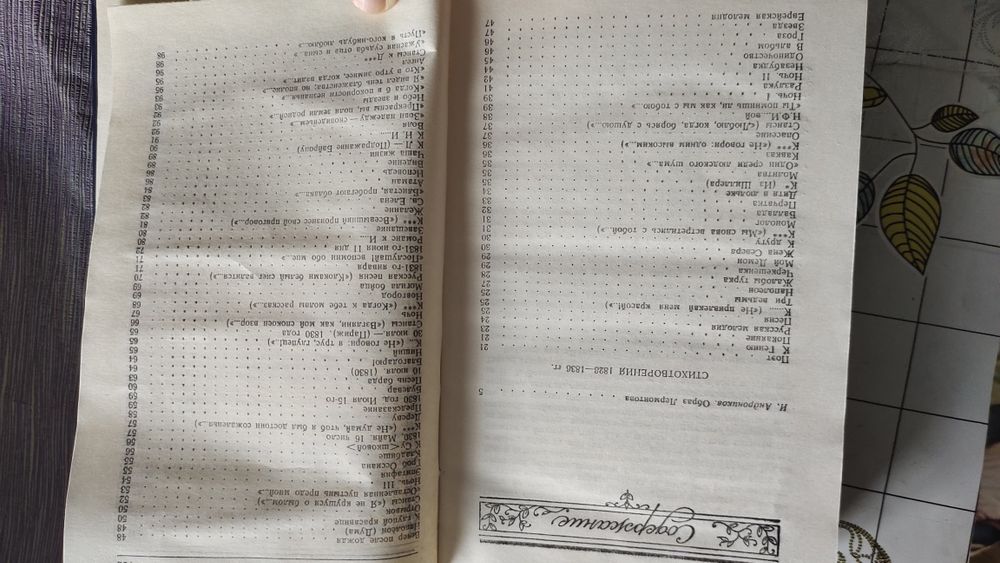 Содержание
И. Андроников. Образ Лермонтова 5
СТИХОТВОРЕНИЯ 1828—1836 гг.
Поэт 21
К Гению 21
Покаяние 23
Русская мелодия 23
Песня 24
К...... («Не привлекай меня красой!..») 25
Три ведьмы 25
Наполеон 27
Жалобы турка 28
Черкешенка 29
Мой Демон 29
Жена Севера 30
К другу 30
К*** («Мы снова встретились с тобой...») 31
Монолог 31
Баллада 32
Перчатка 33
Дитя в люльке 34
К* (Из Шиллера) 35
Молитва 35
«Один среди людского шума...» 35
Кавказ 36
К*** («Не говори: одним высоким...») 36
Опасение 37
Стансы («Люблю, когда, борясь с душою...») 37
Н.Ф.И...вой 38
«Ты помнишь ли, как мы с тобою...» 39
Ночь I 39
Разлука 41
Ночь II 42
Незабудка 44
Одиночество 45
В альбом 46
Гроза 46
Звезда 47
Еврейская мелодия 47
Вечер после дождя 48
Наполеон (Дума) 48
К глупой красавице 50
Отрывок 50
Стансы («Я не крушуся о былом...») 52
Оставленная пустынь предо мной 53
Ночь III 54
Эпитафия 55
Гроб Оссиана 55
Кладбище 56
К Су<шковой> 56
1830. Майя. 16 число
К*** («Не думай, чтоб я был достоин сожаленья...») 57
Дереву 57
Предсказание 58
1830 год. Июля 15-го 59
Булевар
Песнь барда 63
10 июля. (1830) 64
Благодарю! 64
Нищий 65
К... («Не говори: я трус, глупец!..») 65
30 июля.— (Париж). 1830 года 65
Стансы («Взгляни, как мой спокоен взор...») 66
Ночь 67
К*** («Когда к тебе молвы рассказ...») 68
Новгород 69
Могила бойца 69
Русская песня («Клоками белый снег валится...») 70
1831-го января 71
«Послушай! вспомни обо мне...» 71
1831-го июня 11 дня 72
Романс к И... 80
Завещание 80
К*** («Всевышний произнес свой приговор...») 81
Желание 82
Св. Елена 82
«Блистая, пробегают облака...» 83
Атаман 84
Исповедь 86
Видение 86
Чаша жизни 89
К Л.— (Подражание Байрону) 89
К Н. И...... 90
Воля 91
«Зови надежду — сновиденьем...» 92
«Прекрасны вы, поля земли родной...» 92
Небо и звезды 93
«Когда б в покорности незнанья...» 93
«Я видел тень блаженства; но вполне...» 93
«Кто в утро зимнее, когда валит...» 95
Ангел 96
Стансы к Д***
«Ужасная судьба отца и сына...» 98
«Пусть я кого-нибудь люблю...» 98